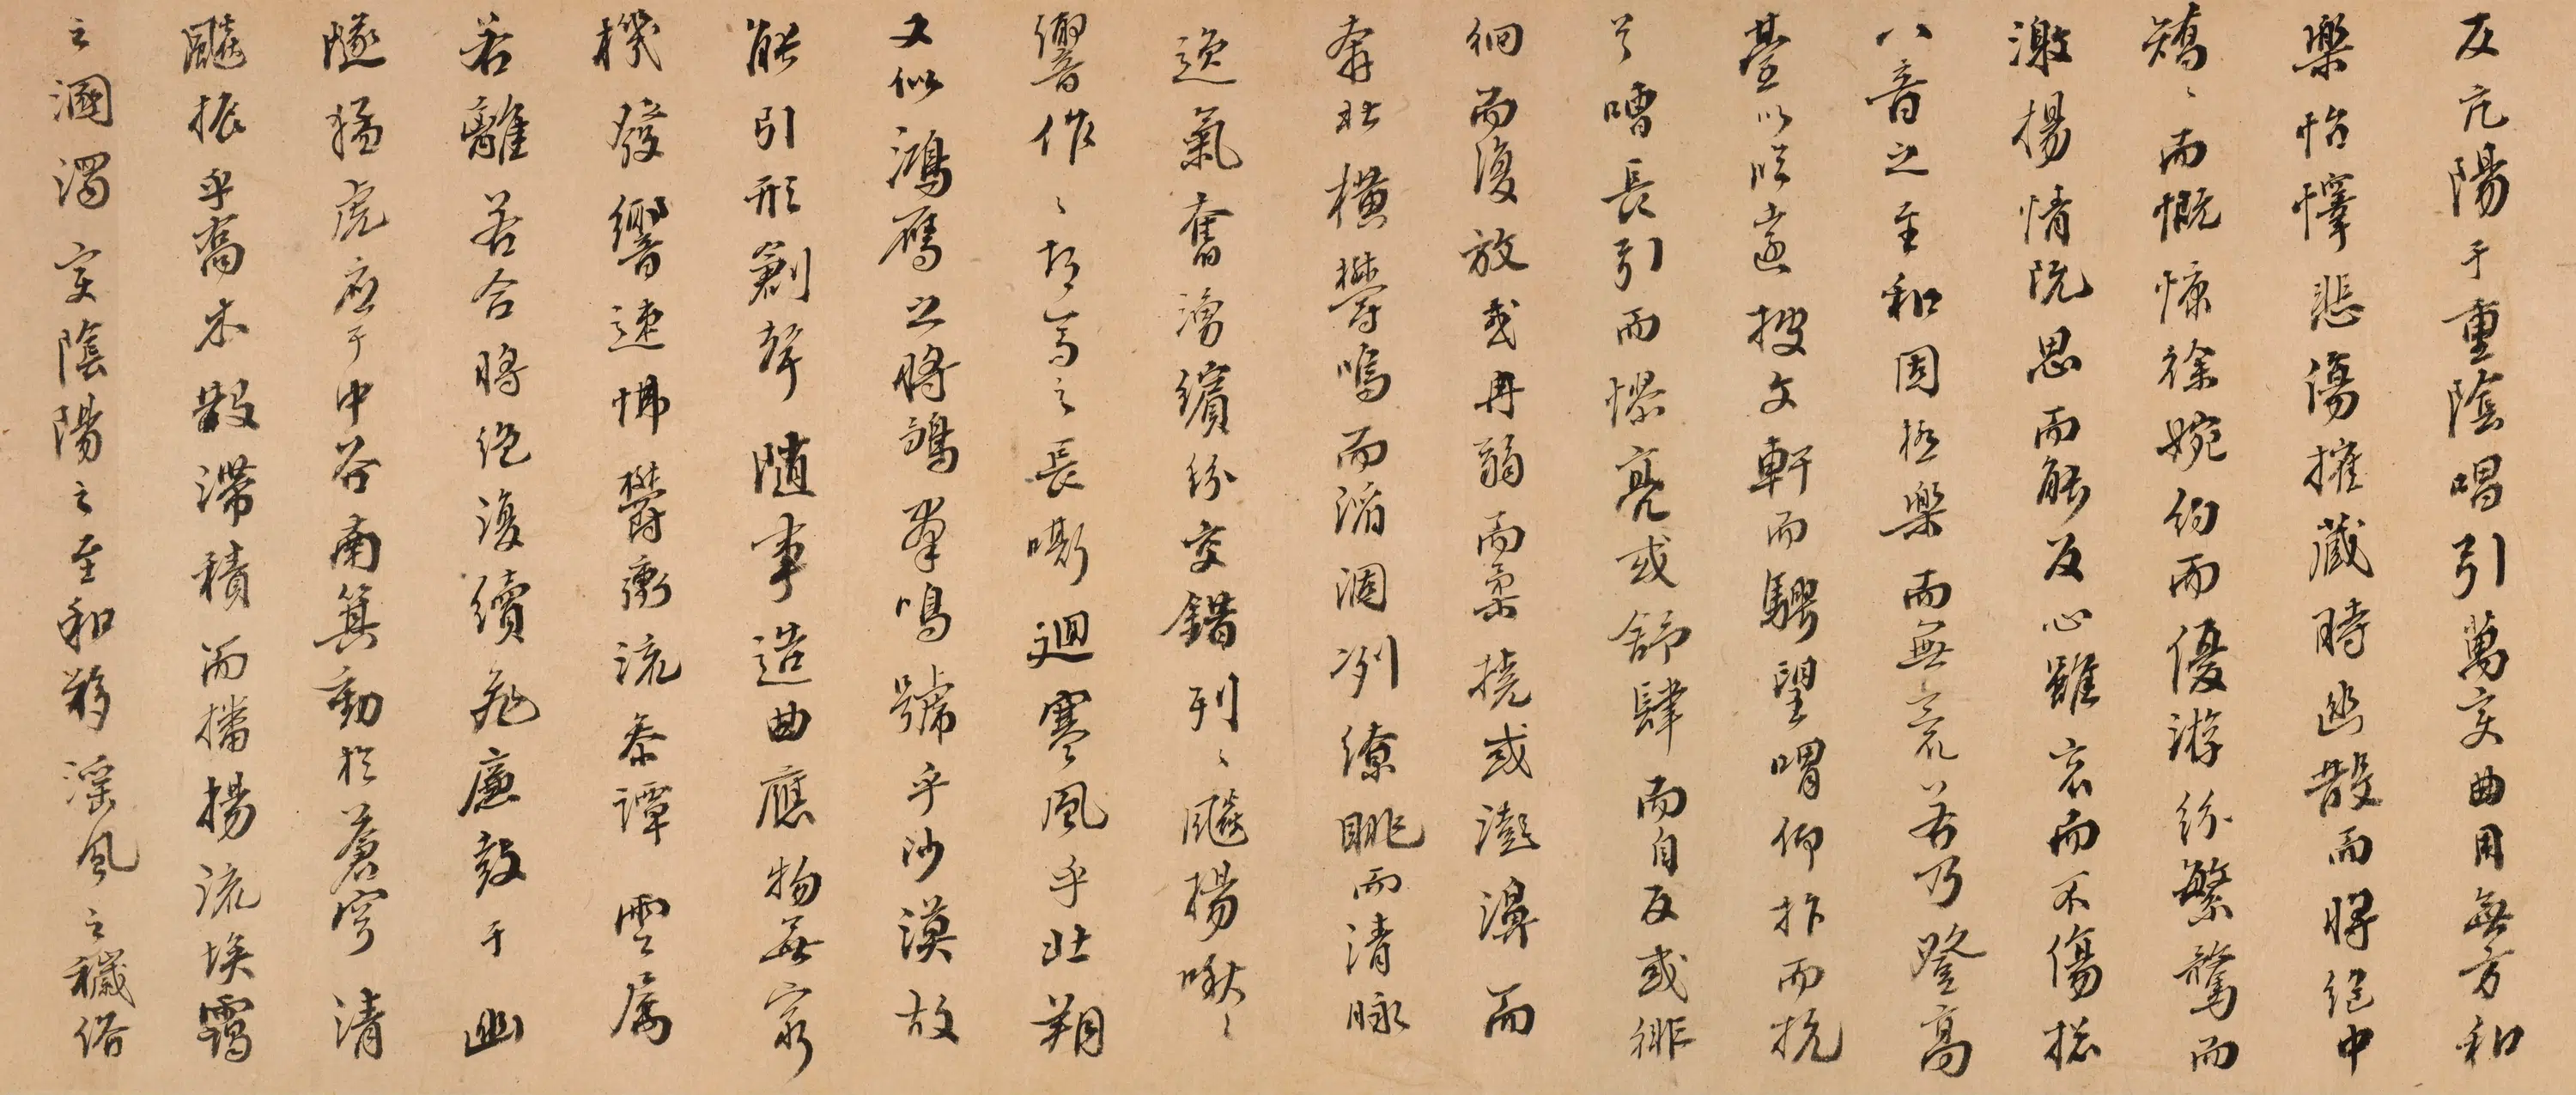 反亢陽于重陰唱引萬變曲用無方和
樂怡懌悲傷摧藏時幽散而將絕中
矯〻而慨慷徐婉約而優游紛繁騖而
激揚情既思而能反心雖哀而不傷總
八音之至和固極樂而無荒若乃登高
臺以臨遠披文軒而騁望喟仰抃而抗
首嘈長引而憀亮或舒肆而自反或徘
徊而復放或冉弱而柔撓或澎濞而
奔壯橫鬱鳴而滔涸冽繚眺而清昶
逸氣奮湧繽紛交錯列〻飈揚啾〻
響作〻胡馬之長嘶迴寒風乎北朔
又似鴻鴈之將鶵群鳴號乎沙漠故
能引形創聲隨事造曲應物無窮
機發響速怫鬱衝流參譚雲屬
若離若合將絕復續飛廉鼓于幽
隧猛虎應于中谷南箕動於蒼穹清
飈振乎喬木散滯積而播揚流埃靄
之溷濁變陰陽之至和移淫風之穢俗